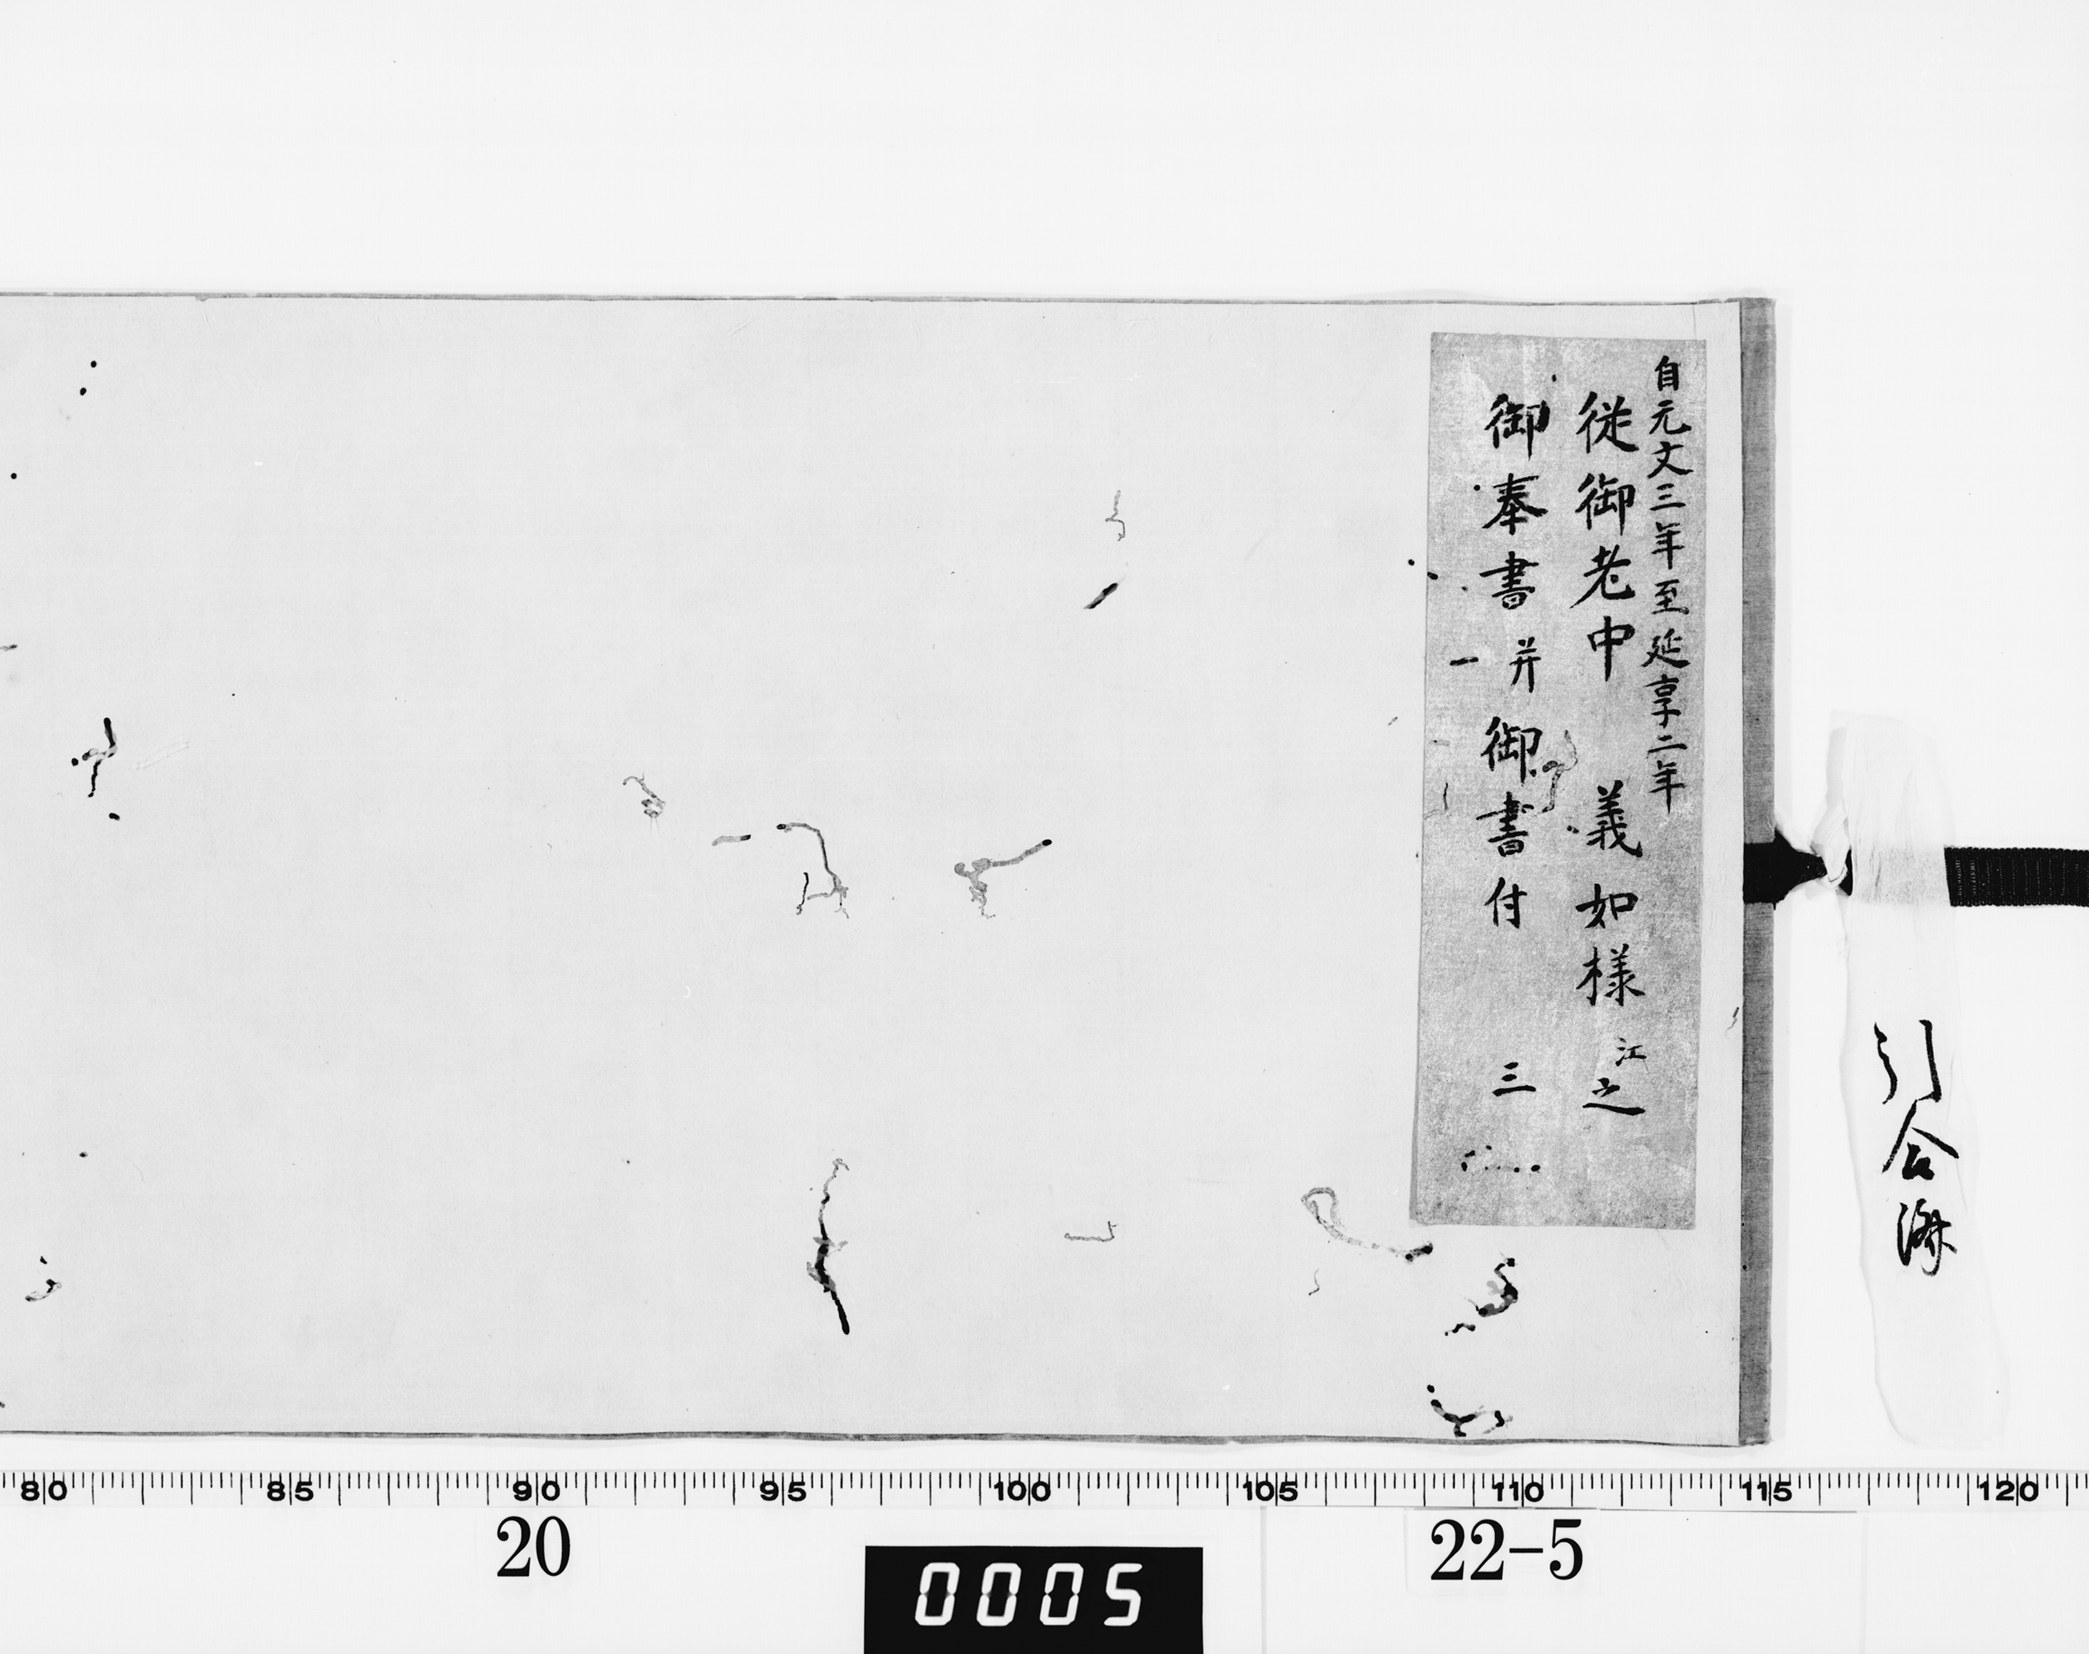 引合済
自元文三年至延享二年
従御老中 義如様江之
御奉書并御書付 三
80 85 90 95 100 105 110 115 120
20 22-5
0005